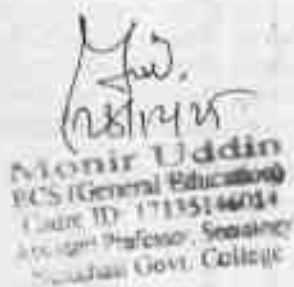 28/12/25
Monir Uddin
BCS (General Education)
Cadre ID: 17135146014
Professor, Sociology
Govt. College